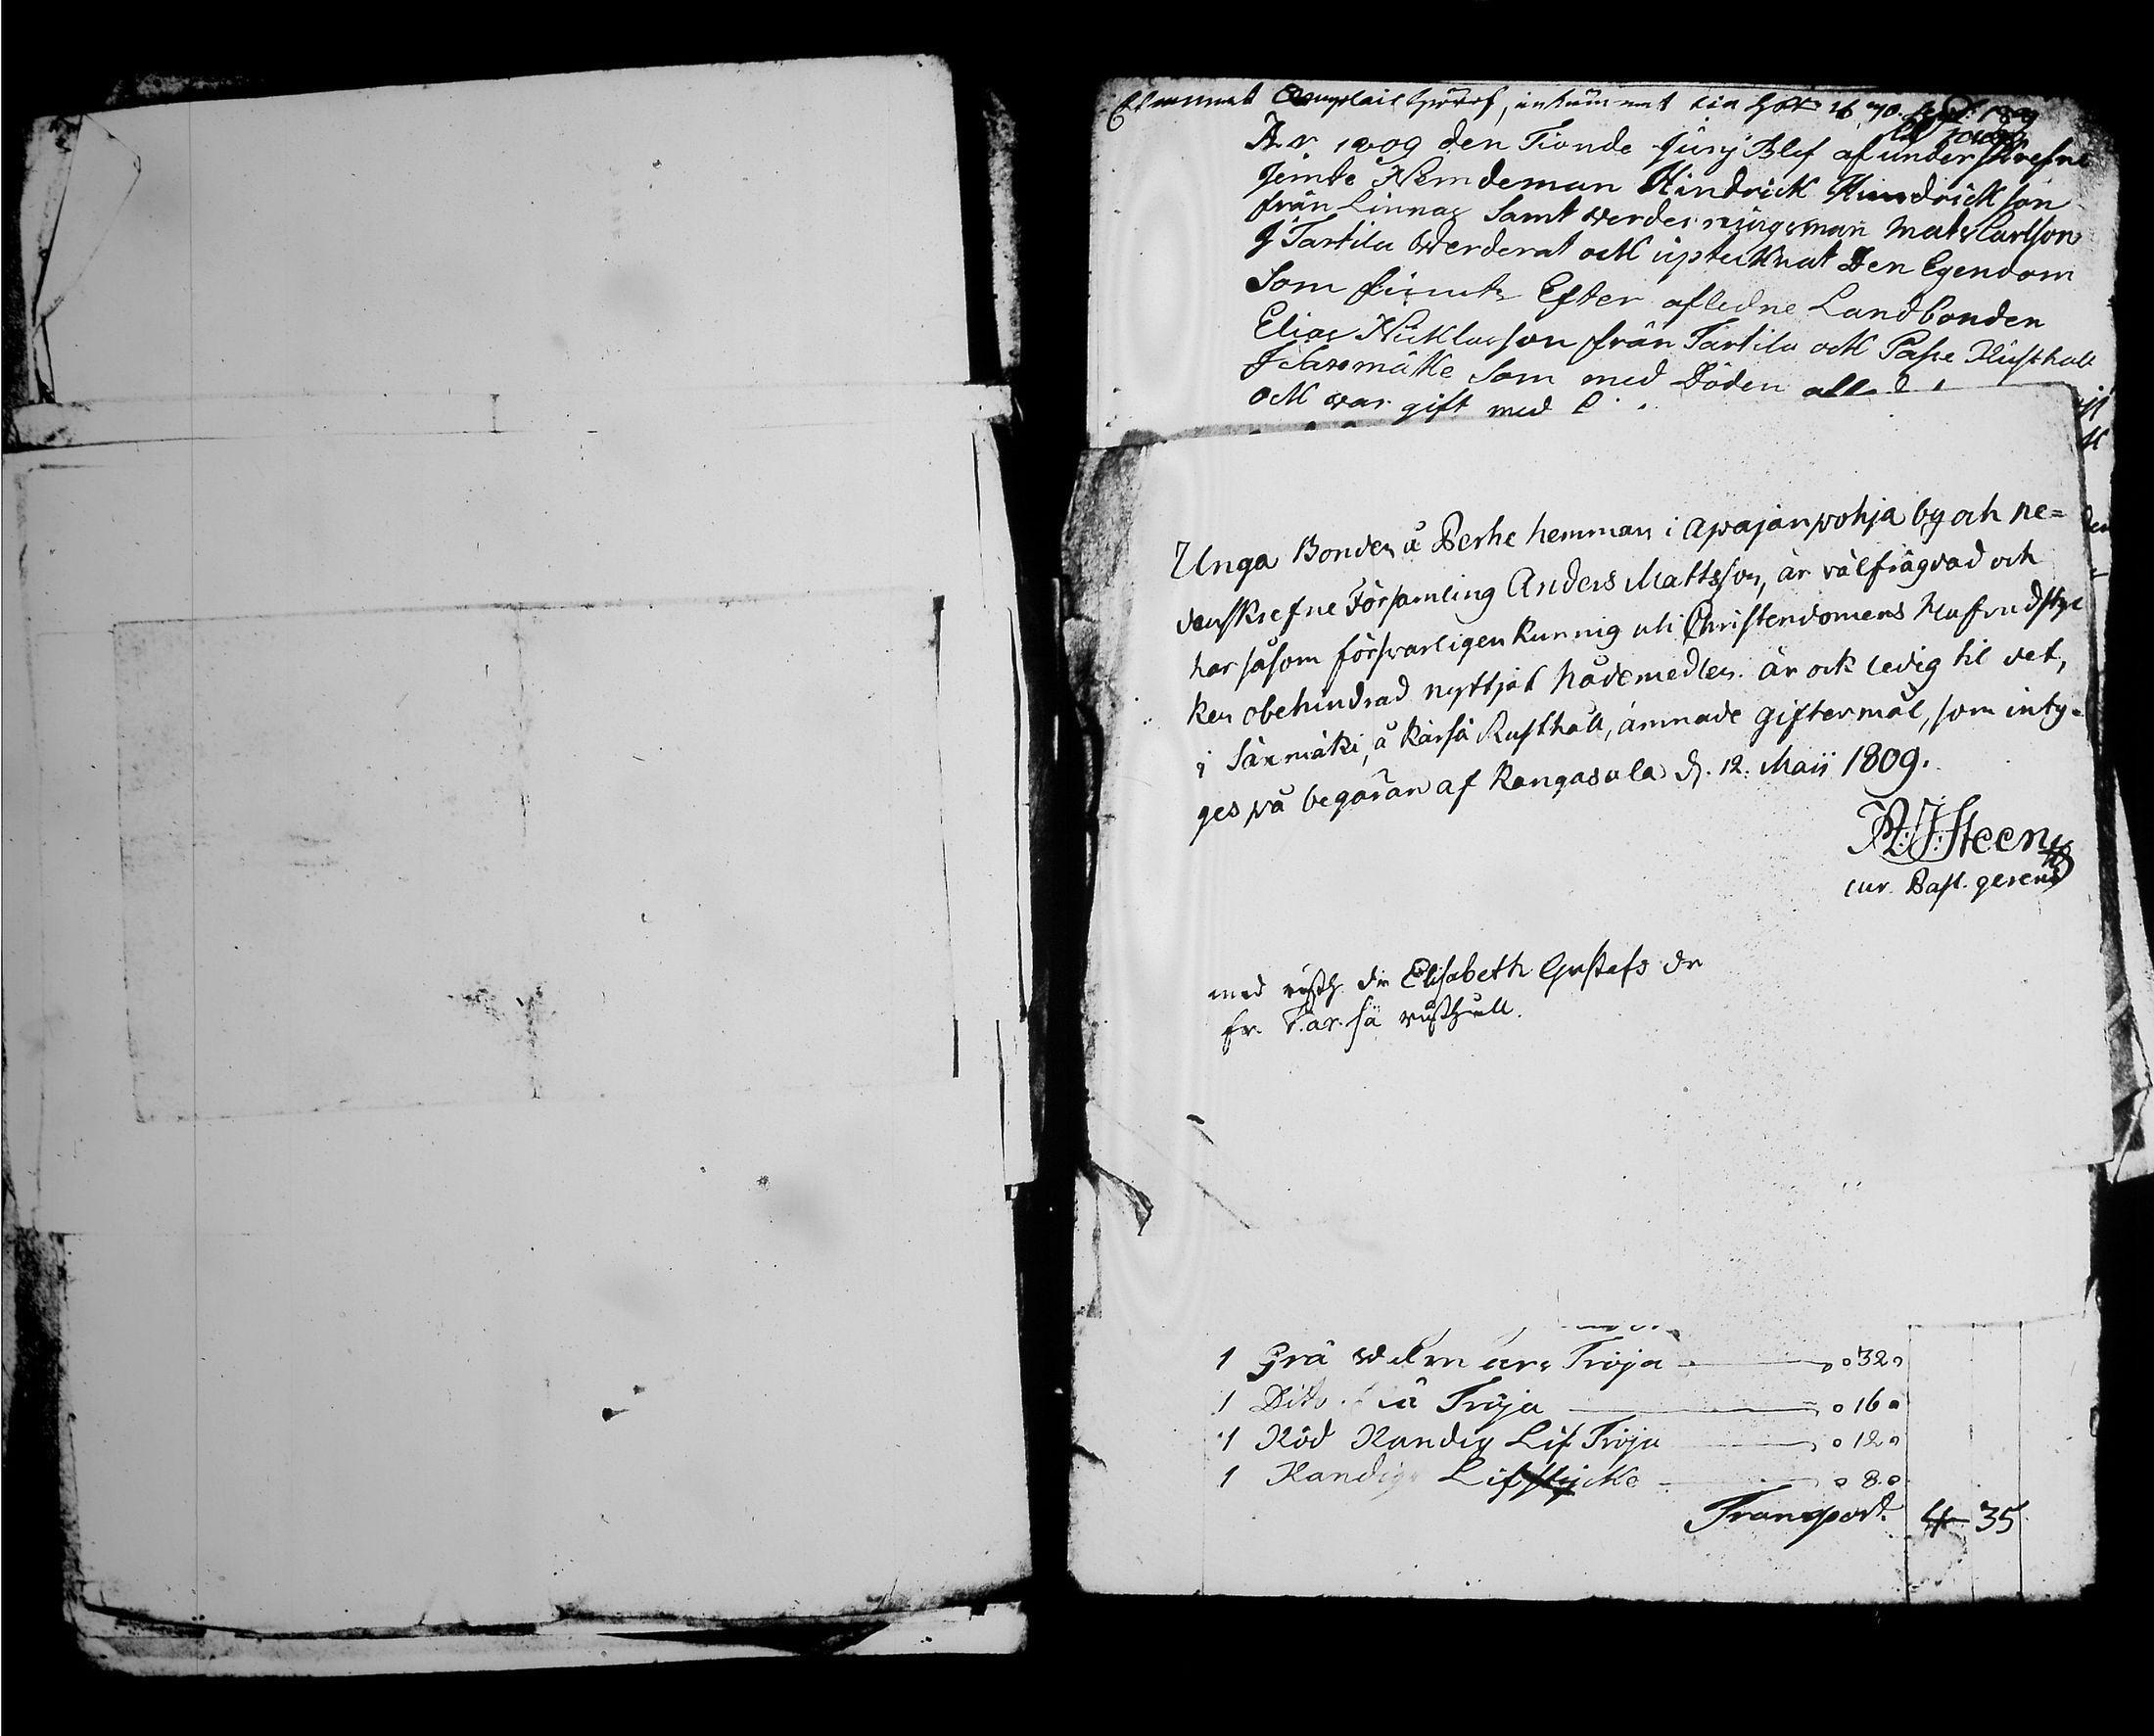 År 1809 den Tionde Juny Blef af underskrefne
Jemte Nemdeman Hindrick Hindrickson
från Linnas Samt werderningsman Mats Carlson
J Tartila Werderat ock uptecknat Den Egendom
Som finnits Efter afledne Landbonden
Elias Nicklasson från Tartila ock Pape Rusthåll
J Saxmäke Som med Döden
ock war gift med
Unga Bonden å Perhe hemman i Apajanpohja by och ne=
danskrefne Församling Anders Mattsson, är välfrägdad och
har såsom försvarligen kunnig uti Christendomens Hufvudstyc
ken obehindrad nyttjat Nådemedlen. är ock ledig til det,
i Säxmäki, å Kärsä Rusthåll, ämnade giftermål, som inty-
ges på begäran af Kangasala d. 12. Maii 1809.
A:J:Steen
cur. Past. gerens
med rusth. dr Elisabeth Gustafs dr
fr. Kärsä rusthåll.
1 Grå Walmars Tröja 32
1 Dito Tröja 16
1 Röd Randig Lif Tröja 12
1 Randig Lifstycke 8
Transport. 4 35